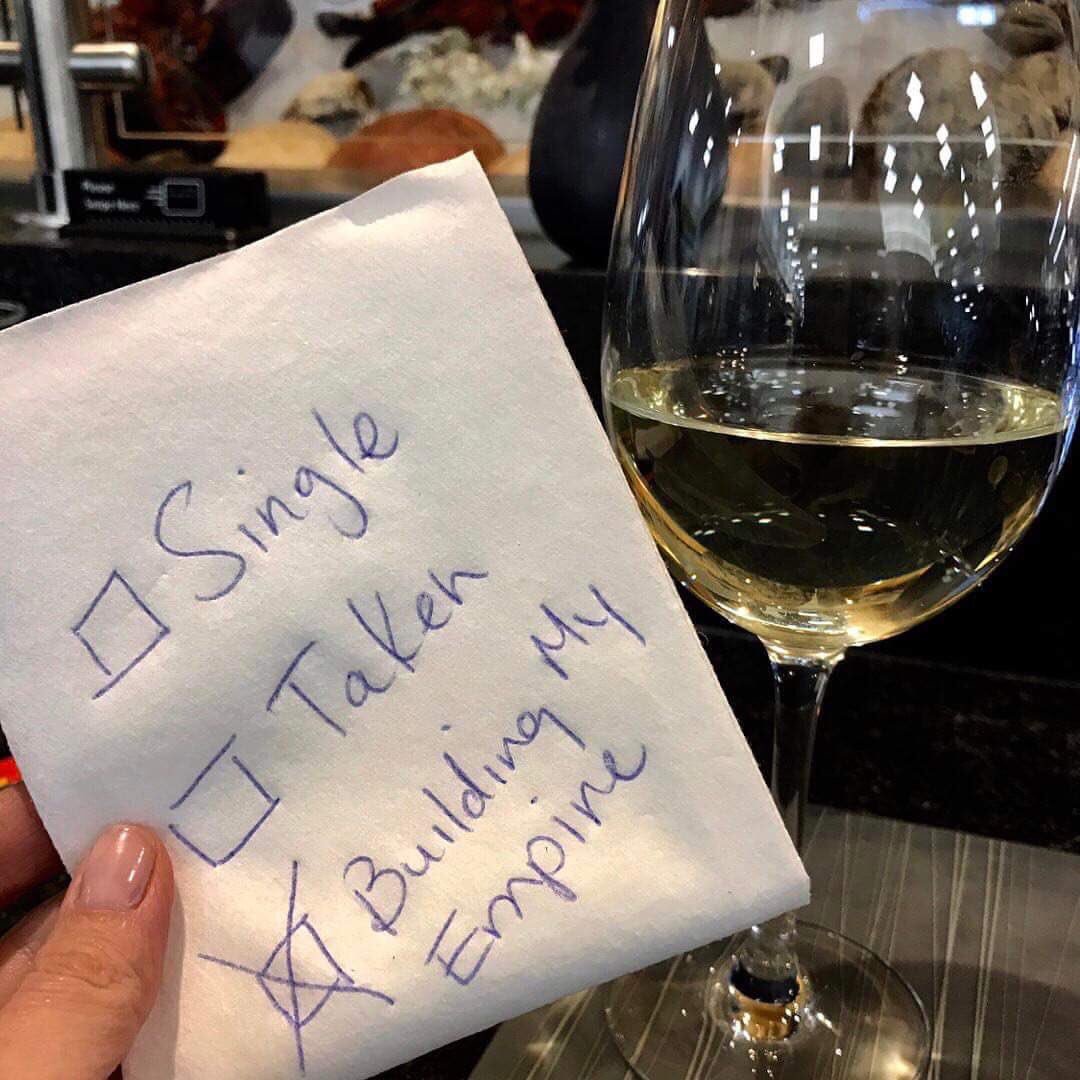 Single
Taken
Building My
Empire